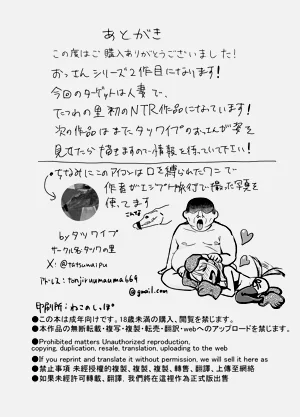 あとがき
この度はご購入ありがとうございました!
おっさんシリーズ2作目になります!
今回のターゲットは人妻で、
たつわの里初のNTR作品になっています!
次の作品はまたタツワイプのおっさんが姿を
見せたら描きますので情報を待っていて下さい!
ちなみにこのアイコンは口を縛られたワニで
作者がエジプト旅行で撮った写真を
使ってます
こんな
byタツワイプ
サークル名タツワの里
X:@tatsuwaipu
アドレス:tonjiruumauma669
@gmail.com
印刷所:ねこのしっぽ
●この本は成年向けです。18歳未満の購入、閲覧を禁じます。
●本作品の無断転載・複写・複製・転売・翻訳・webへのアップロードを禁じます。
●Prohibited matters Unauthorized reproduction,
copying, duplication, resale, translation, uploading to the web
●If you reprint and translate it without permission, we will sell it here as
●禁止事項 未經授權的複製、複製、複製、轉售、翻譯、上傳至網絡
●如果未經許可轉載、翻譯, 我們將在這裡作為正式版出售